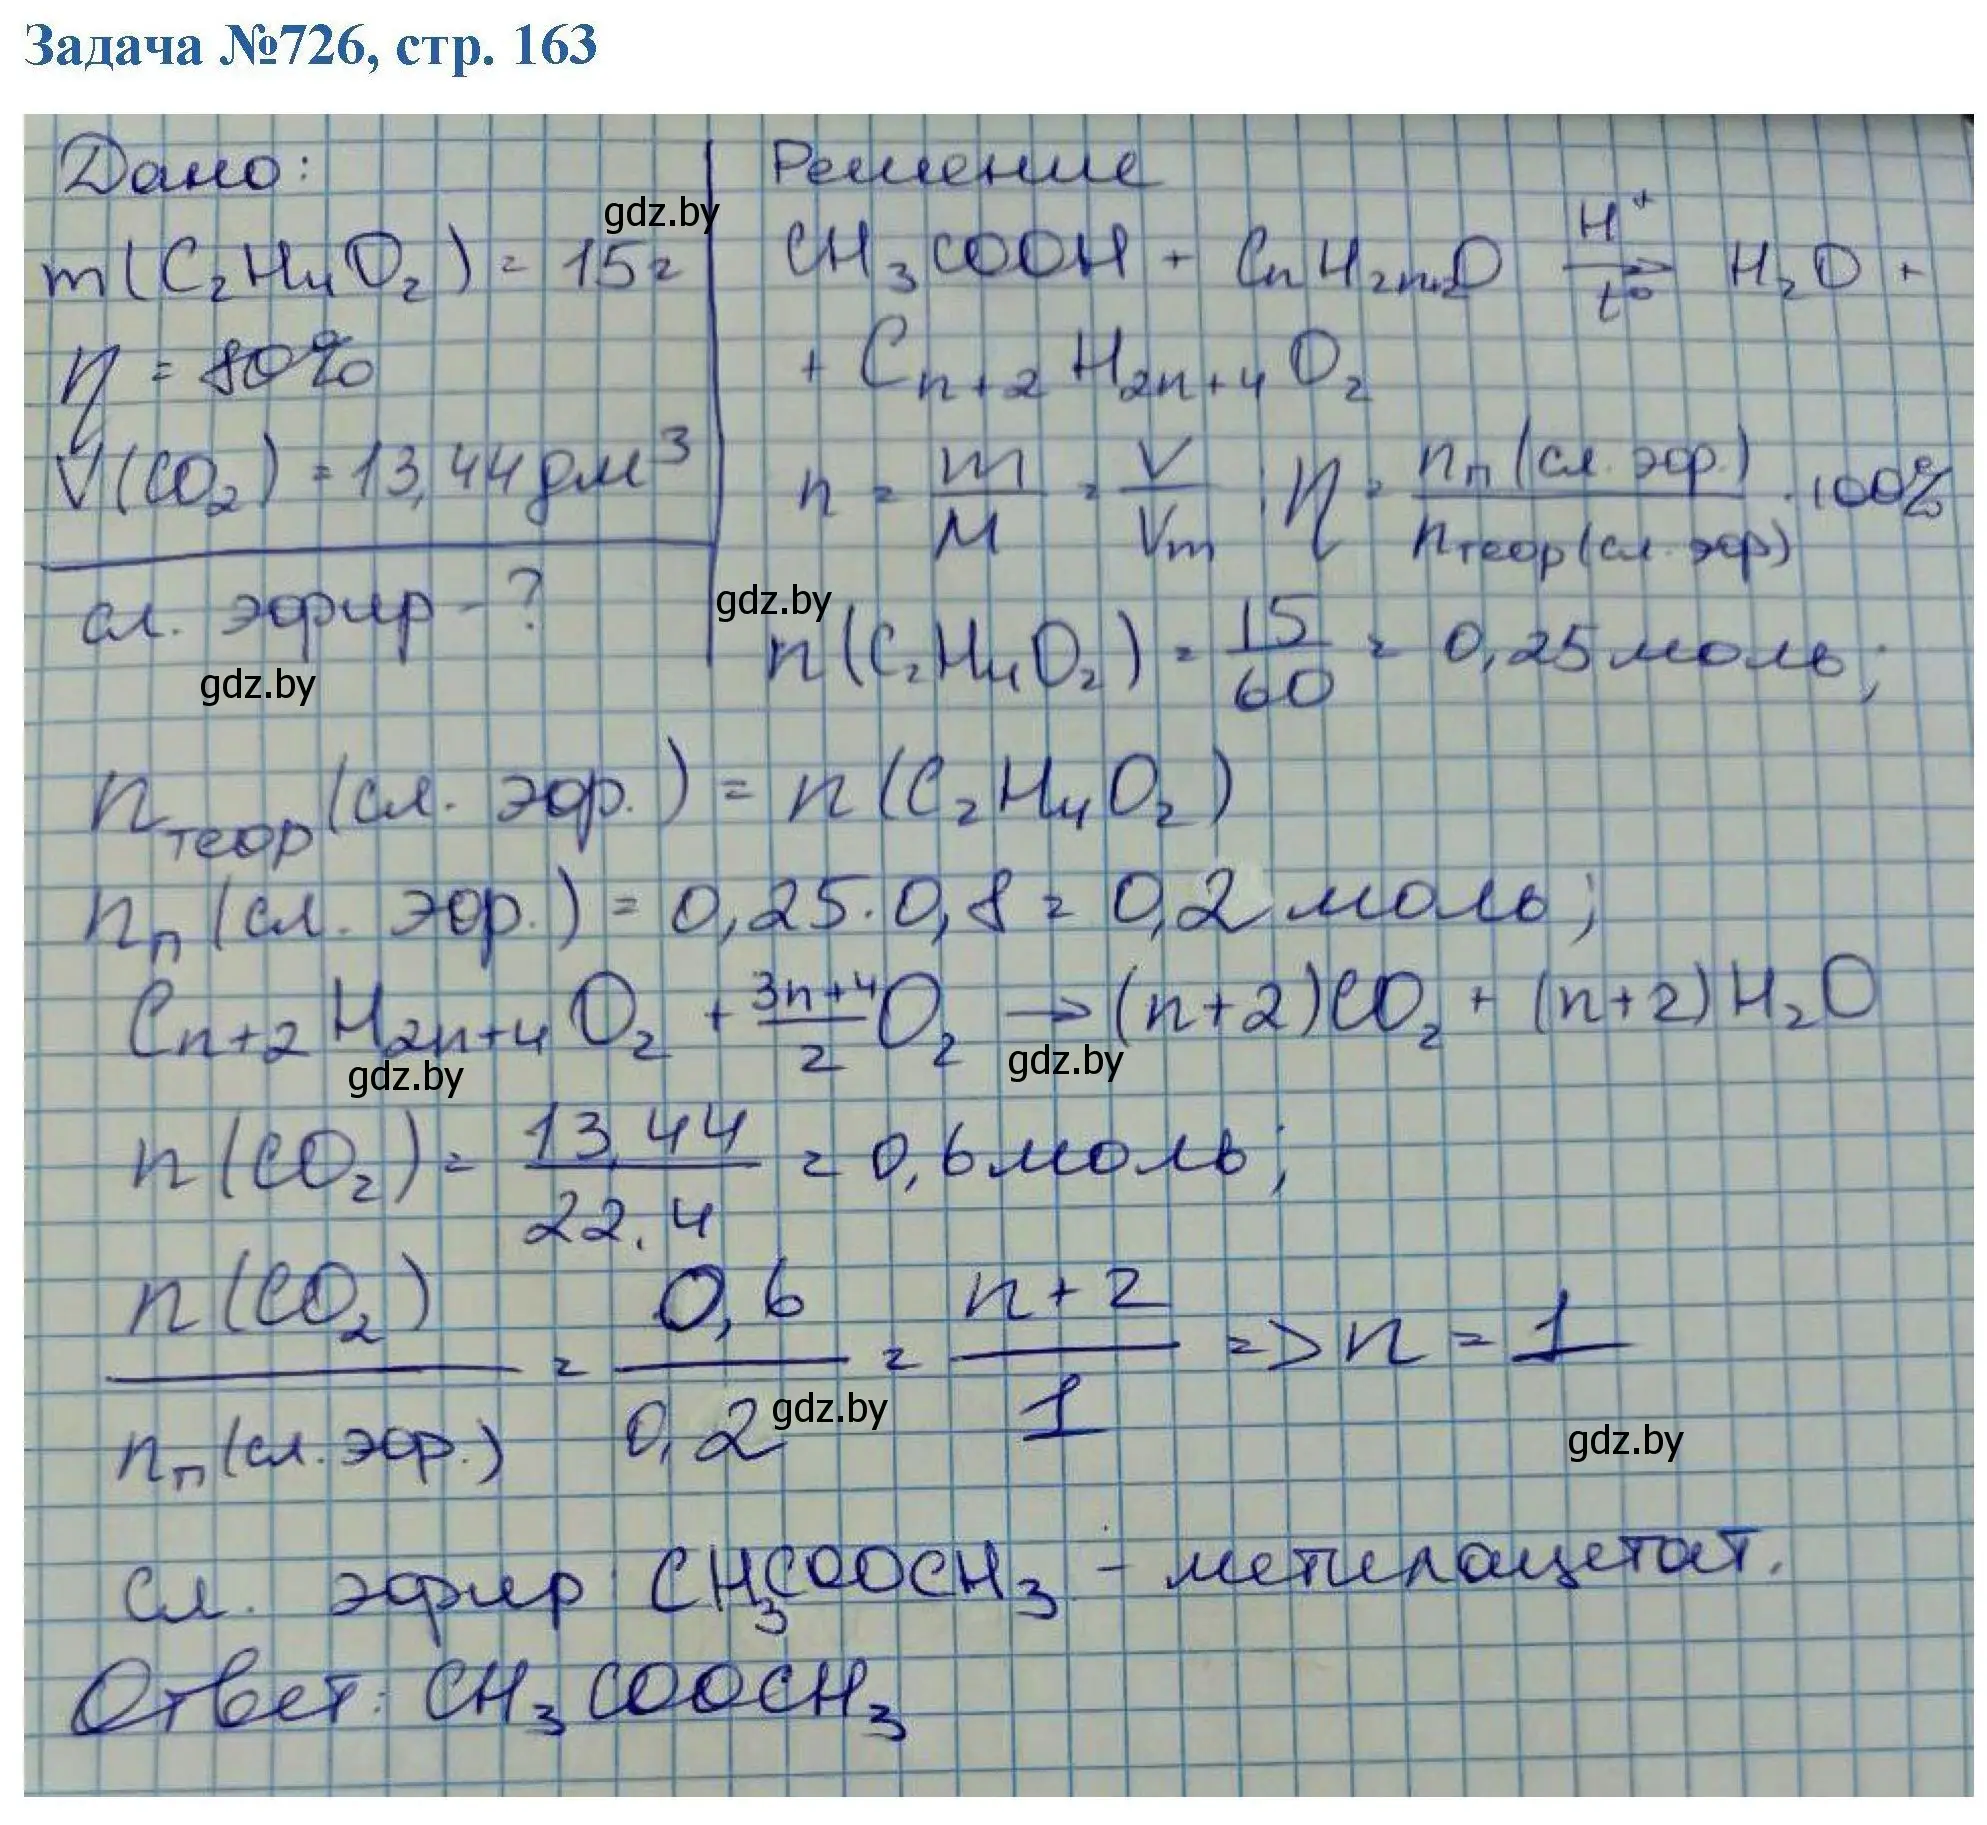 Задача №726, стр. 163
Дано:
m(C₂H₄O₂) = 15г
η = 80%
V(CO₂) = 13,44 дм³
сл. эфир - ?
Решение
CH₃COOH + CₙH₂ₙ₊₂O H⁺ t° → H₂O +
+ Cₙ₊₂H₂ₙ₊₄O₂
n = m/M = V/Vm ; η = nп(сл. эфр.)/nтеор(сл. эфр) · 100%
n(C₂H₄O₂) = 15/60 = 0,25 моль;
nтеор(сл. эфр.) = n(C₂H₄O₂)
nп(сл. эфр.) = 0,25·0,8 = 0,2 моль;
Cₙ₊₂H₂ₙ₊₄O₂ + 3n+4/2 O₂ → (n+2)CO₂ + (n+2)H₂O
n(CO₂) = 13,44/22,4 = 0,6 моль;
n(CO₂)/nп(сл. эфр.) = 0,6/0,2 = n+2/1 => n = 1
сл. эфир CH₃COOCH₃ - метилацетат.
Ответ: CH₃COOCH₃
gdz.by
gdz.by
gdz.by
gdz.by
gdz.by
gdz.by
gdz.by